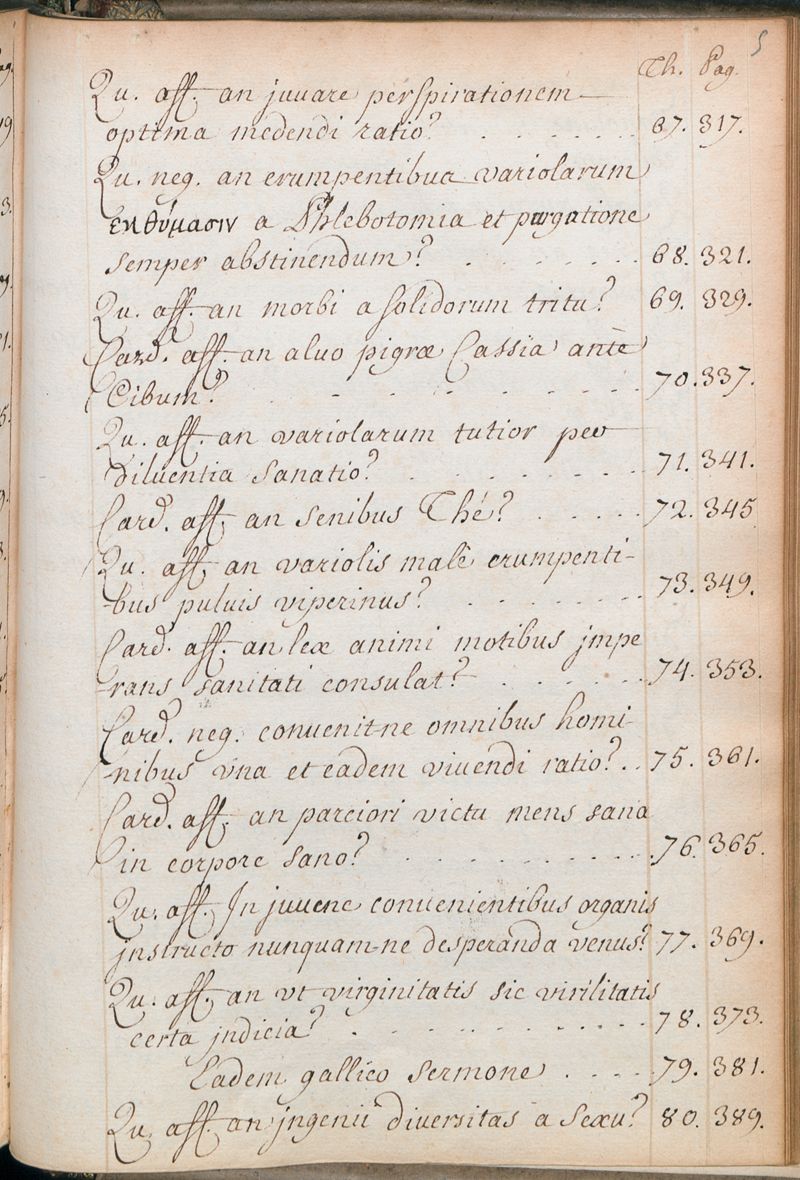 5
Th. Pag.
Qu. aff. an juuare perspirationem
optima medendi ratio? . . . . . . 67. 317.
Qu. neg. an erumpentibus variolarum
ενθύμασιν a Phlebotomia et purgatione
semper abstinendum? . . . . . . 68. 321.
Qu. aff. an morbi a solidorum tritu? 69. 329.
Card. aff. an aluo pigræ Cassia antè
Cibum? . . . . . . 70. 337.
Qu. aff. an variolarum tutior per
diluentia sanatio? . . . . . . 71. 341.
Card. aff. an senibus Thé? . . . . . 72. 345
Qu. aff. an variolis malè erumpenti-
-bus puluis viperinus? . . . . . . 73. 349.
Card. aff. an lex animi motibus jmpe
-rans sanitati consulat? . . . . . 74. 353.
Card. neg. conuenit-ne omnibus homi-
-nibus vna et eadem viuendi ratio? . . 75. 361.
Card. aff. an parciori victu mens sana
in corpore sano? . . . . . . 76. 365.
Qu. aff. In juuene conuenientibus organis
jnstructo nunquam-ne desperanda venus? 77. 369.
Qu. aff. an vt virginitatis sic virilitatis
certa jndicia? . . . . . . 78. 373.
Eadem gallico sermone . . . . 79. 381.
Qu. aff. an jngenii diversitas a sexu? 80. 389.